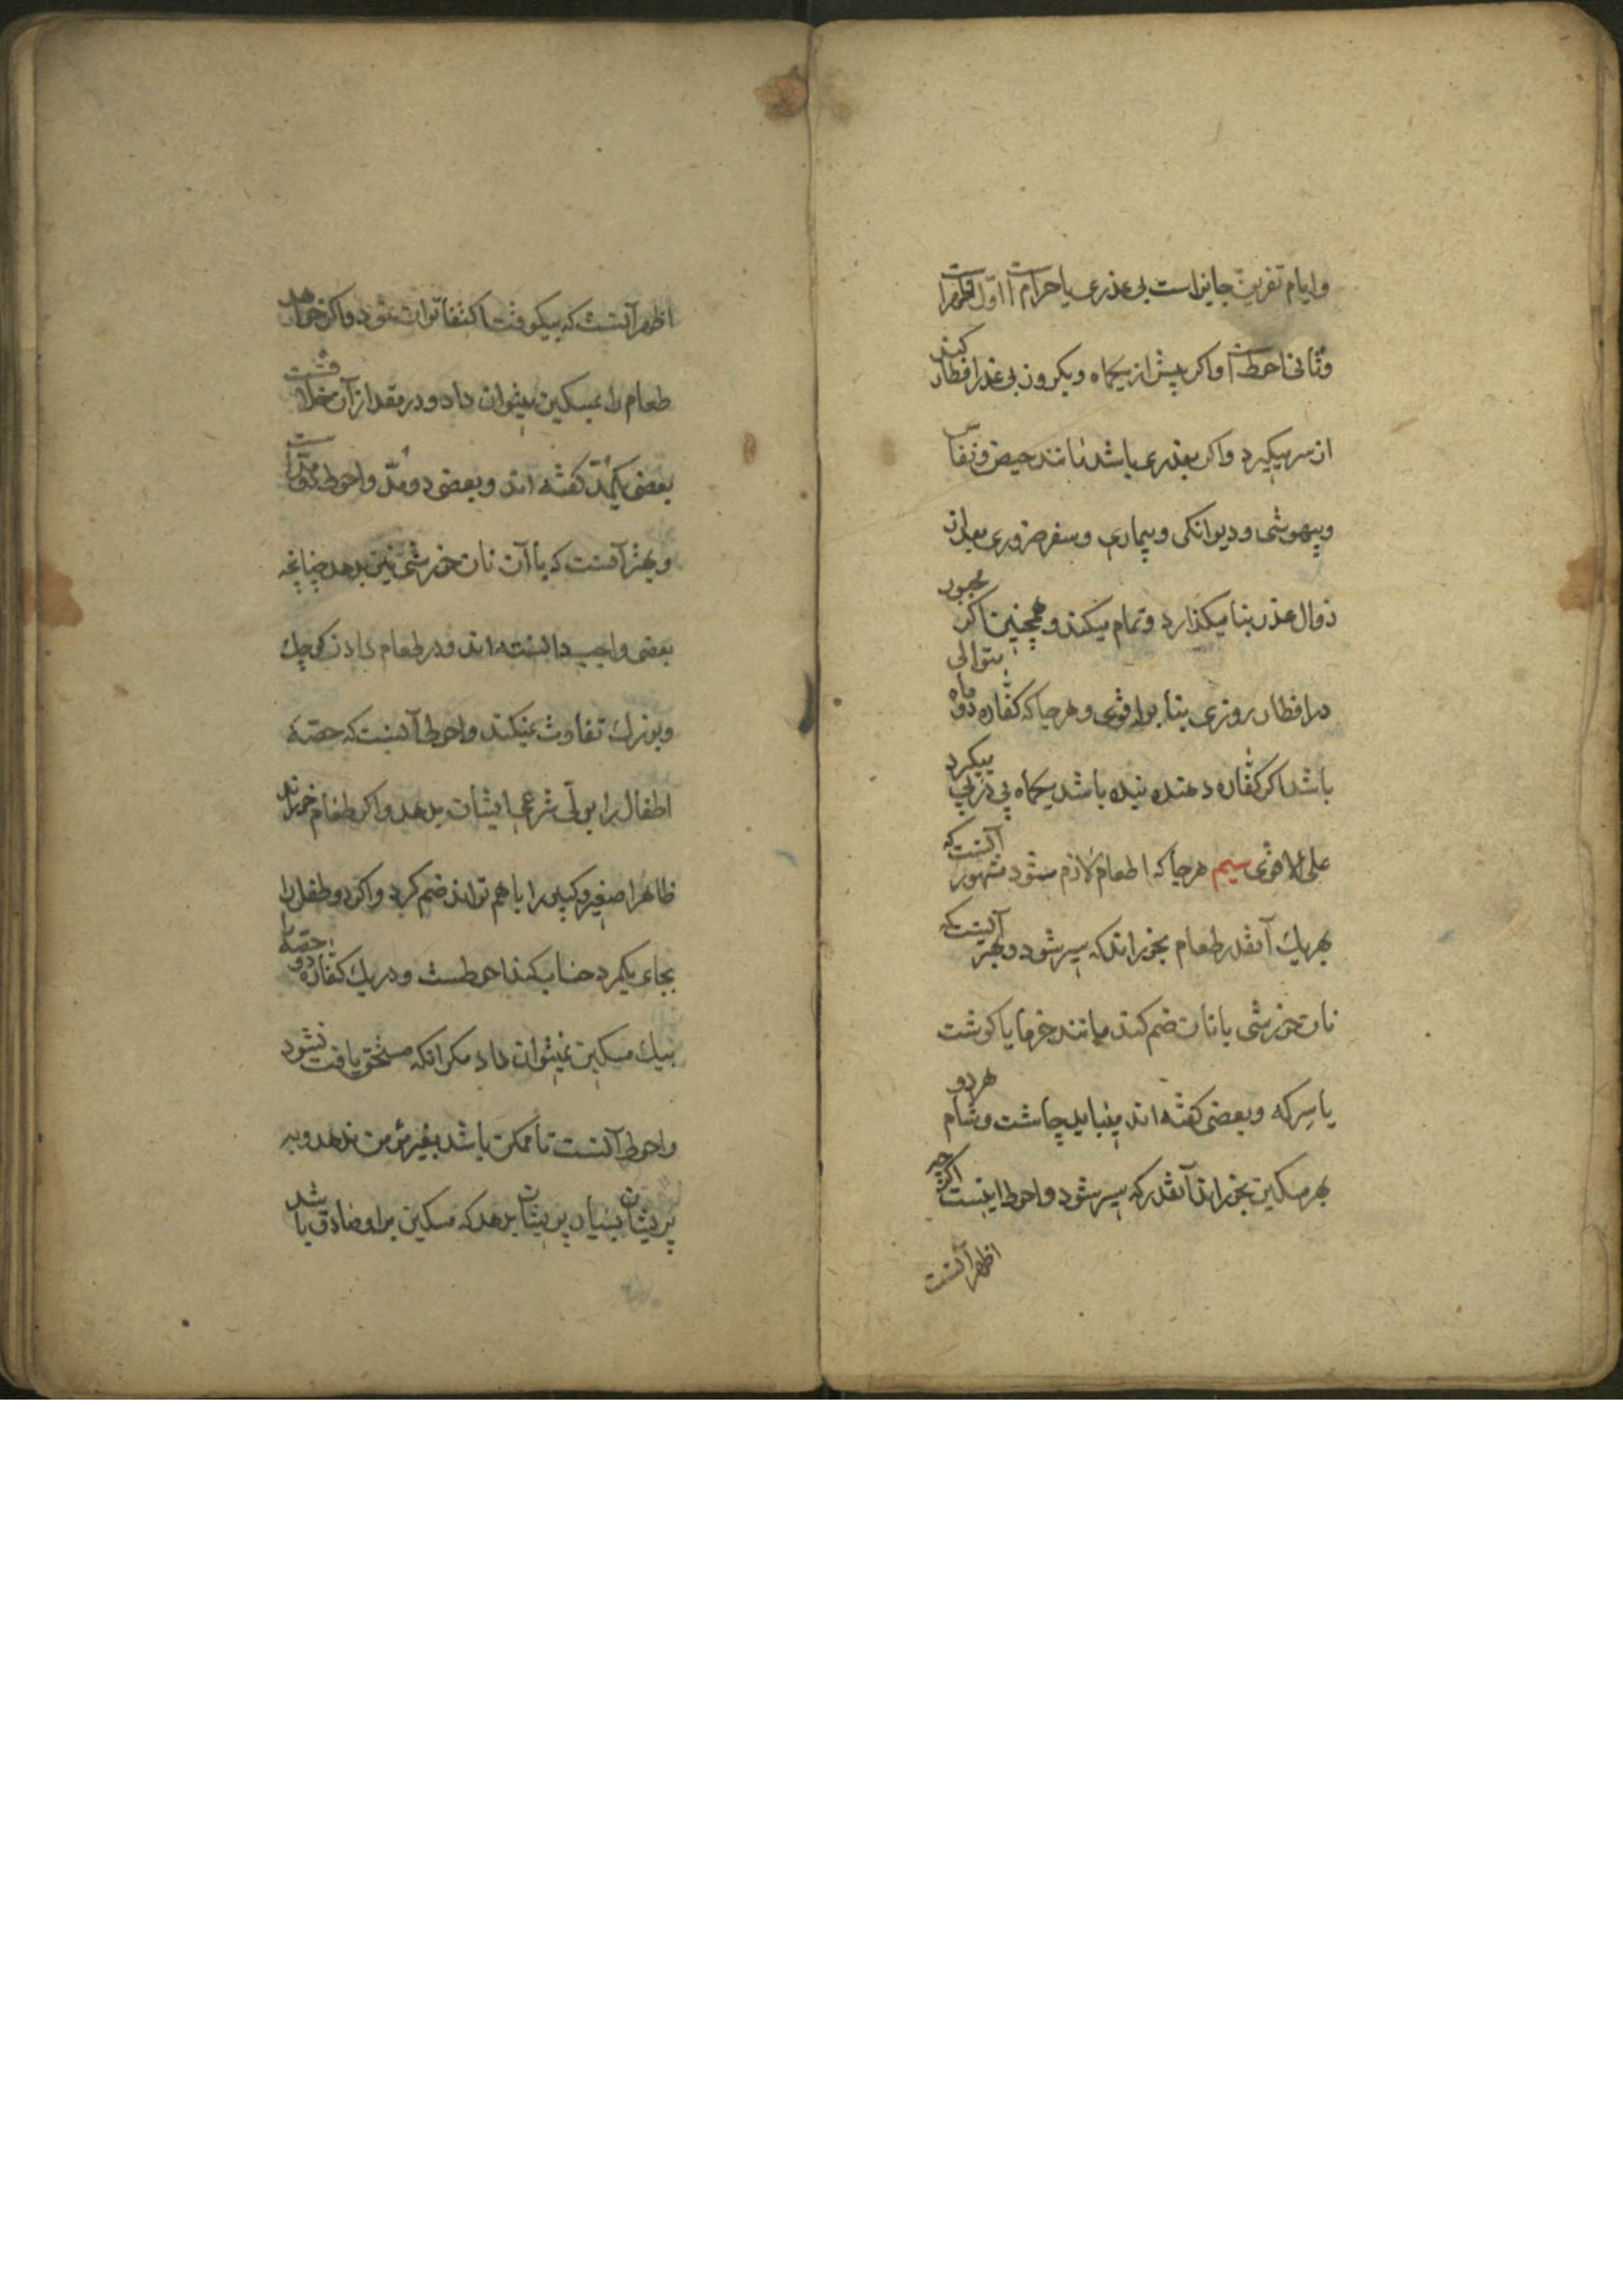 وایام تفریق جایز است بی عذری یا حرام است اول اقواست
وثانی احوط است واکر پیش از یکماه ویکروز بی عذر افطار کند
از سر میکیرد واکر بعذری باشد مانند حیض ونفاس
وبیهوشی ودیوانکی وبیماری وسفر ضروری بعد از
زوال عذر بنا میکذارد وتمام میکند وهمچنین اکر مجبور
در افطار روزی بنا بر اقوی وهر جا که کفاره دو ماه متوالی
باشد اکر کفاره دهنده بنده باشد یکماه پی در پی میکیرد
علی الاقوی سیم هر جا که اطعام لازم میشود مشهور آنست که
بهریك آنقدر طعام بخوراند که سیر شود وبهتر آنست که
نان خورشی با نان ضم کند مانند خرما یا کوشت
یا سرکه وبعضی کفته اند میباید چاشت وشام هر دو
بهر مسکین بخوراند آنقدر که سیر شود واحوط اینست اکرچه
اظهر آنست
اظهر آنست که بیکوقت اکتفا توان نمود واکر خواهد
طعام را بمسکین میتوان داد ودر مقدار آن خلافست
بعضی یکمد کفته اند وبعضی دو مد واحوط دو مد است
وبهتر آنست که با آن نان خورشی نیز بدهد چنانچه
بعضی واجب دانسته اند ودر طعام دادن کوچك
وبزرك تفاوت نمیکند واحوط آنست که حصه
اطفال را بولی شرعی ایشان بدهد واکر طعام خوراند
ظاهرا صغیر وکبیر را با هم تواند ضم کرد واکر دو طفل را
بجای یکمرد حساب کند احوطست ودر یك کفاره دو حصه را
بیك مسکین نمیتوان داد مکر آنکه مستحق یافت نشود
واحوط آنست تا ممکن باشد بغیر مؤمن ندهد وبه
پریشان بسیار پریشان بدهد که مسکین بر او صادق باشد